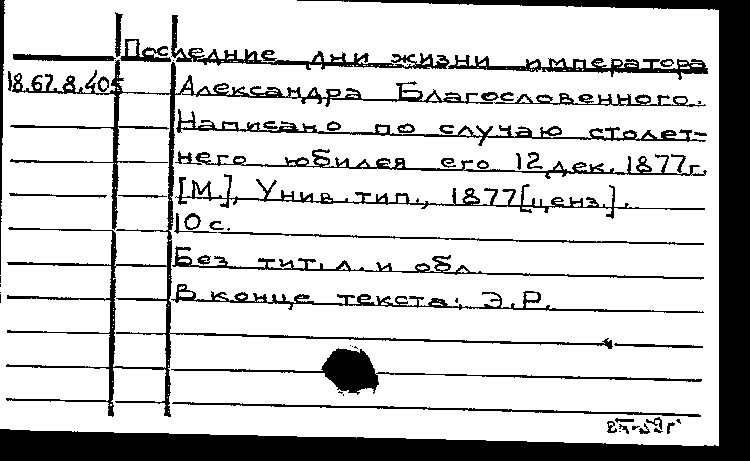 Последние дни жизни императора
18.67.8.405 Александра Благословенного.
Написано по случаю столет-
него юбилея его 12 дек. 1877г.
[М.], Унив. тип., 1877[ценз.].
10 с.
Без тит. л. и обл.
В конце текста: Э.Р.